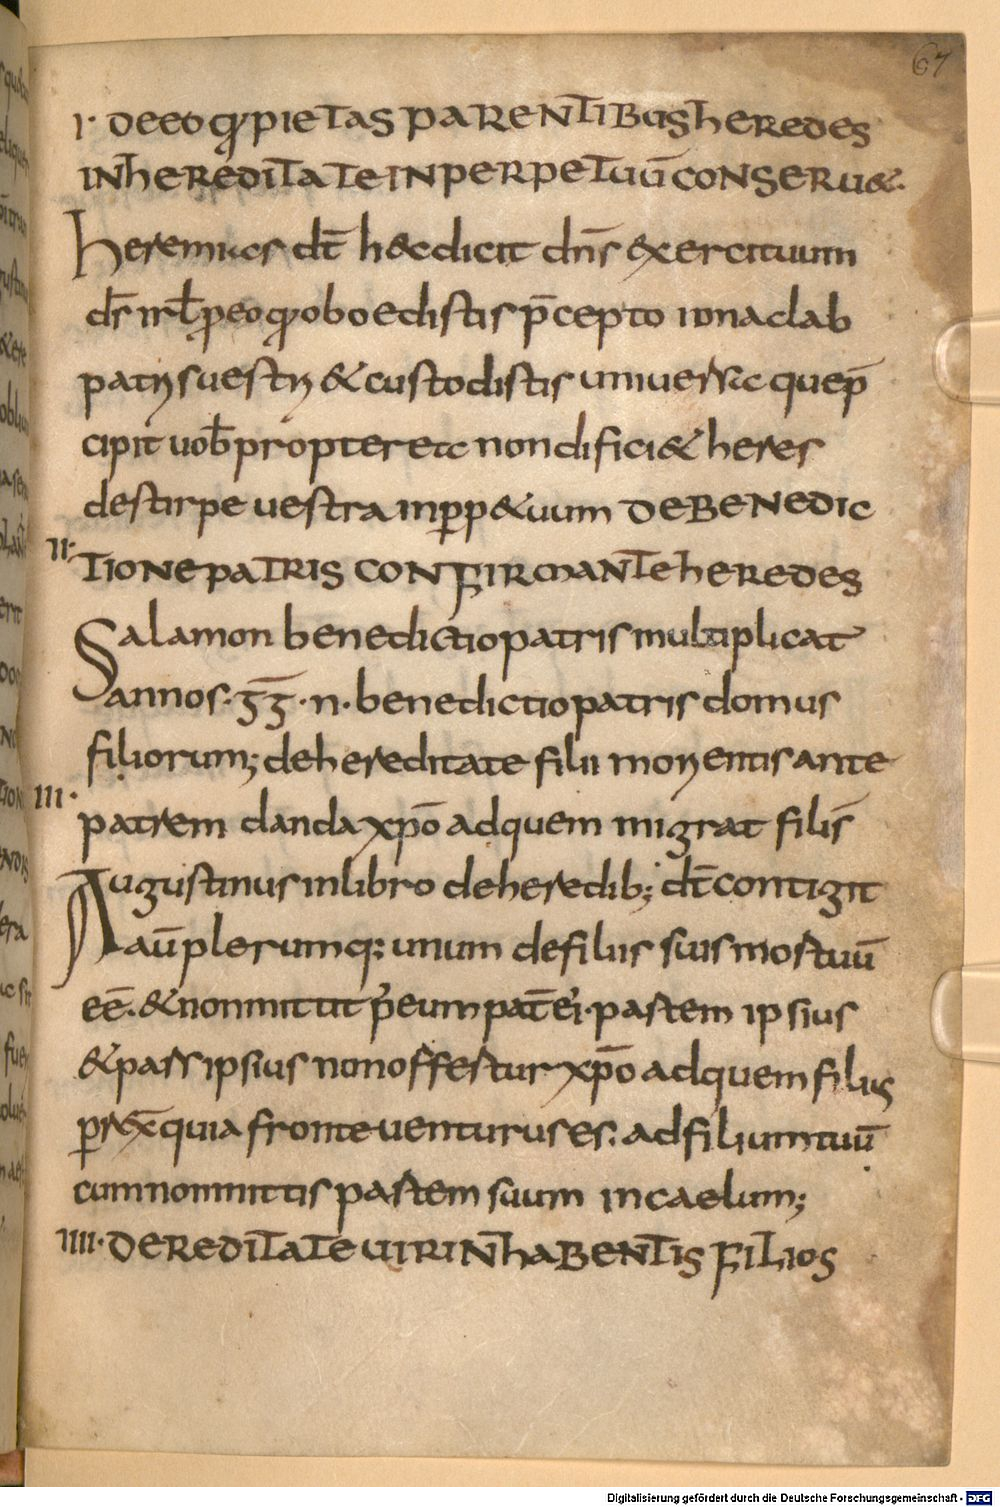 67
I· DE EO Q̄ PIETAS PARENTIBUS HEREDES
IN HEREDITATE IN PERPETUŪ CONSERU&·
Heremias dt̄ hęc dicit dn̄s exercituum
ds̄ isrł p eo q oboedistis p̄cepto ionadab
patris uestri & custodistis uniuersa que p̄
cipit uob̄ propterea non difici& heres
de stirpe uestra in perp&uum DE BENEDIC
II· TIONE PATRIS CONFIRMANTE HEREDES
Salamon benedictio patris multiplicat
annos· ·n· benedictio patris domus
filiorum; de hereditate filii morientis ante
III· patrem danda xp̄o ad quem migrat filis̄
Augustinus in libro de heredib; dt̄ contigit
aū plerumq: unum de filiis suis mortuū
eē. & non mittit p̄ eum pat̄ ei· partem ipsius
& pars ipsius non offertur xp̄o ad quem filius
quia fronte uenturus es. ad filium tuū
cum non mittis partem suum in caelum;
IIII· DE REDITATE UIRI N HABENTIS FILIOS
Digitalisierung gefördert durch die Deutsche Forschungsgemeinschaft - DFG